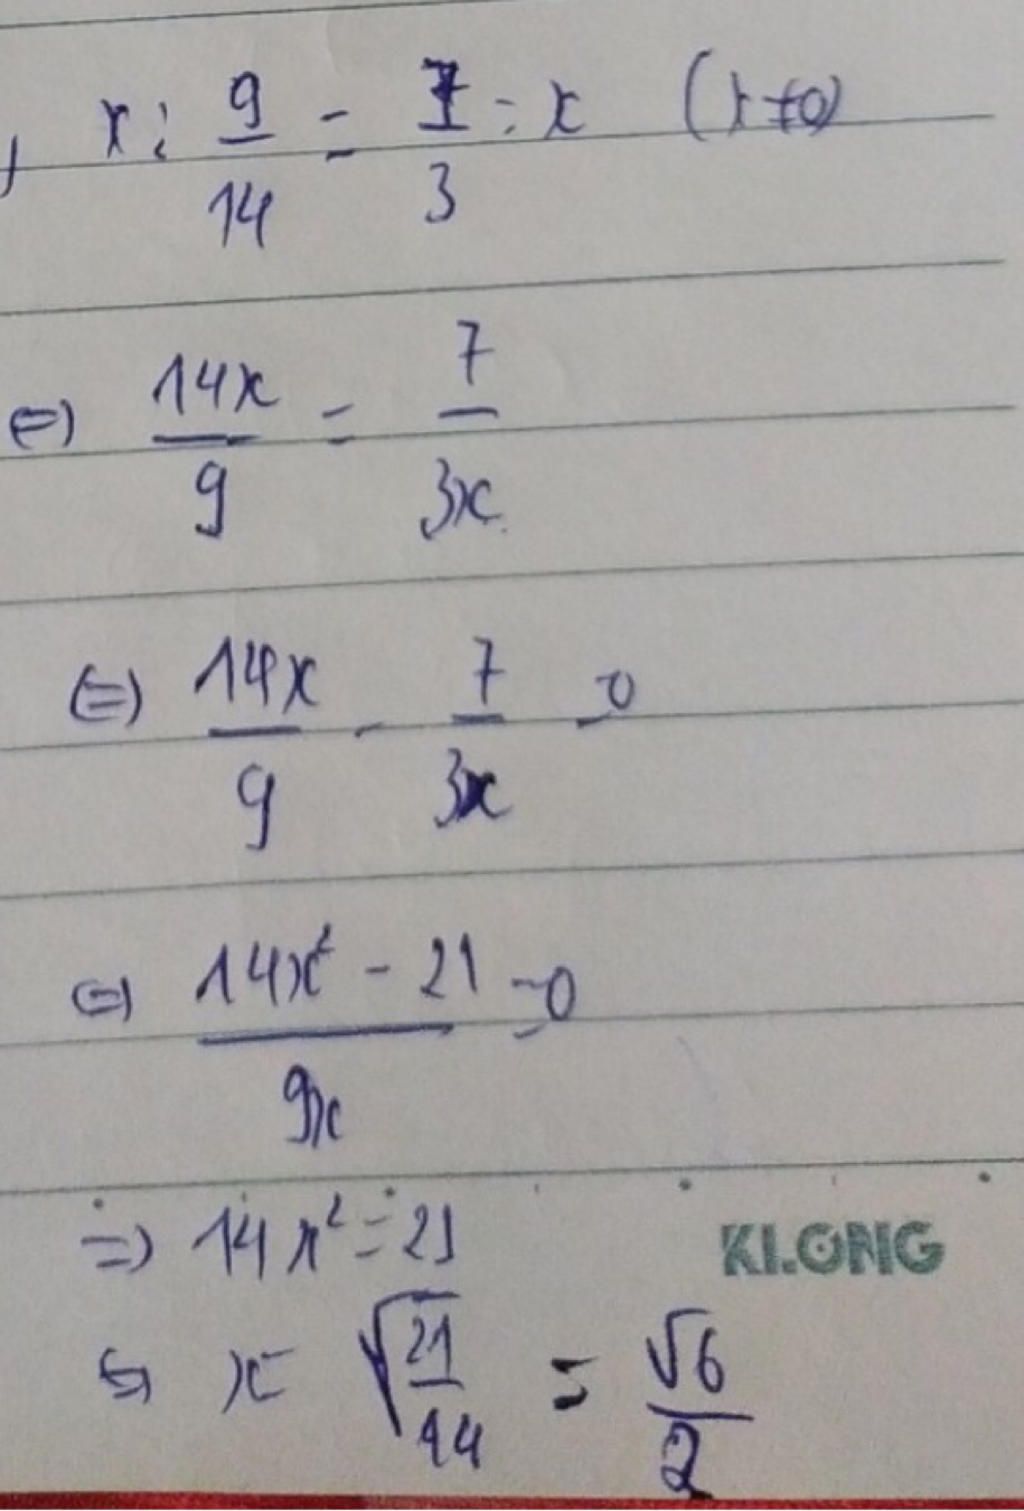 x : 9/14 = 7/3 : x (x ≠ 0)
⇔ 14x/9 = 7/3x
⇔ 14x/9 - 7/3x = 0
⇔ 14x² - 21/9x = 0
⇒ 14x² = 21
KLONG
⇔ x = √21/14 = √6/2